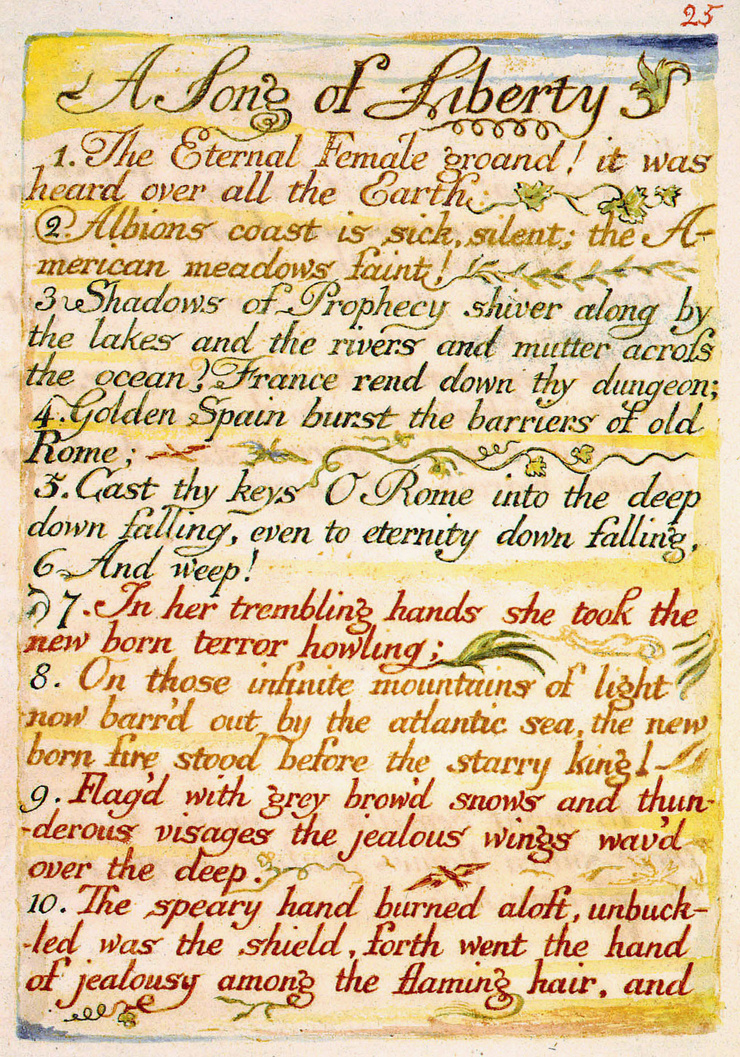 25
A Song of Liberty
1. The Eternal Female groand! it was
heard over all the Earth:
2. Albions coast is sick, silent; the A-
merican meadows faint!
3 Shadows of Prophecy shiver along by
the lakes and the rivers and mutter acroſs
the ocean? France rend down thy dungeon;
4. Golden Spain burst the barriers of old
Rome;
5. Cast thy keys O Rome into the deep
down falling, even to eternity down falling,
6 And weep!
7. In her trembling hands she took the
new born terror howling;
8. On those infinite mountains of light
now barr'd out by the atlantic sea, the new
born fire stood before the starry king!
9. Flag'd with grey brow'd snows and thun-
-derous visages the jealous wings wav'd
over the deep.
10. The speary hand burned aloft, unbuck-
-led was the shield, forth went the hand
of jealousy among the flaming hair, and